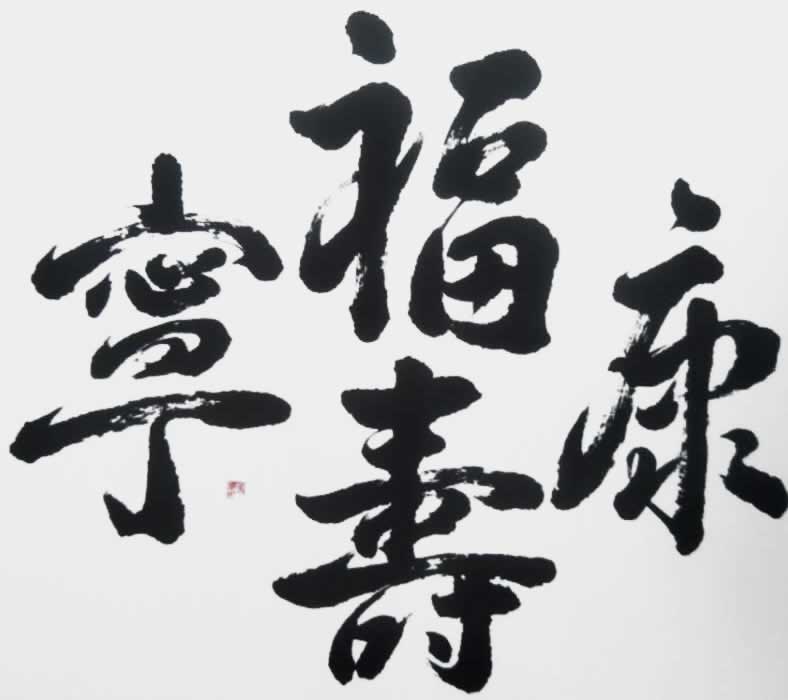 康
福
壽
寧